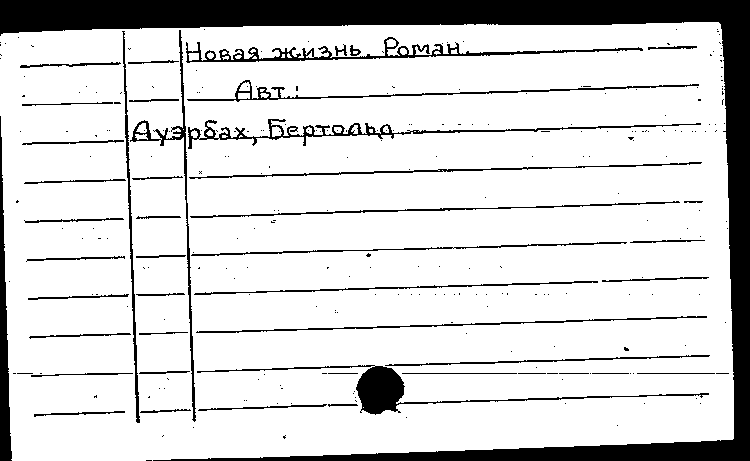 Новая жизнь. Роман.
Авт.:
Ауэрбах, Бертольд